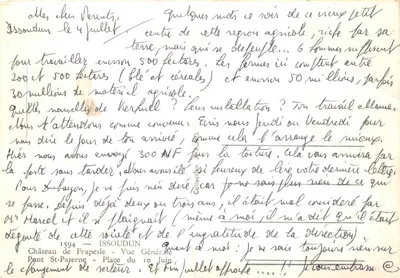 Mes chers Parents, Quelques mots ce soir de ce vieux petit
Issoudun le 4 juillet centre de cette région agricole, riche par sa
terre, mais qui se dépeuple... 6 hommes suffisent
pour travailler environ 500 hectares. Les fermes ici comptent entre
200 et 500 hectares (blé et céréales) et environ 50 millions, parfois
30 millions de matériel agricole.
Quelles nouvelles de ? Leur installation ? Ton travail Maman.
Nous t'attendons comme convenu. Ecris nous jeudi ou vendredi pour
nous dire le jour de ton arrivée, comme cela t'arrange le mieux.
Hier nous avons envoyé 300 NF pour la toiture. Cela vous arrivera par
la poste sans tarder. Nous avons été si heureux de lire votre dernière lettre.
Pour , je ne puis rien dire, car je ne sais plus rien de ce qui
se passe. Depuis déjà deux ou trois ans, il était mal considéré par
Mr Marcel et il s'plaignait (même à moi, il m'a dit qu'il était
dégoûté de cette société et de l'ingratitude de la direction)
1594 — ISSOUDUN
Château de Frapesle - Vue Générale
Quant à moi : je ne sais toujours rien sur
Pont St-Paterne - Place du 10 Juin
le changement de secteur. Et fin juillet approche ....!!